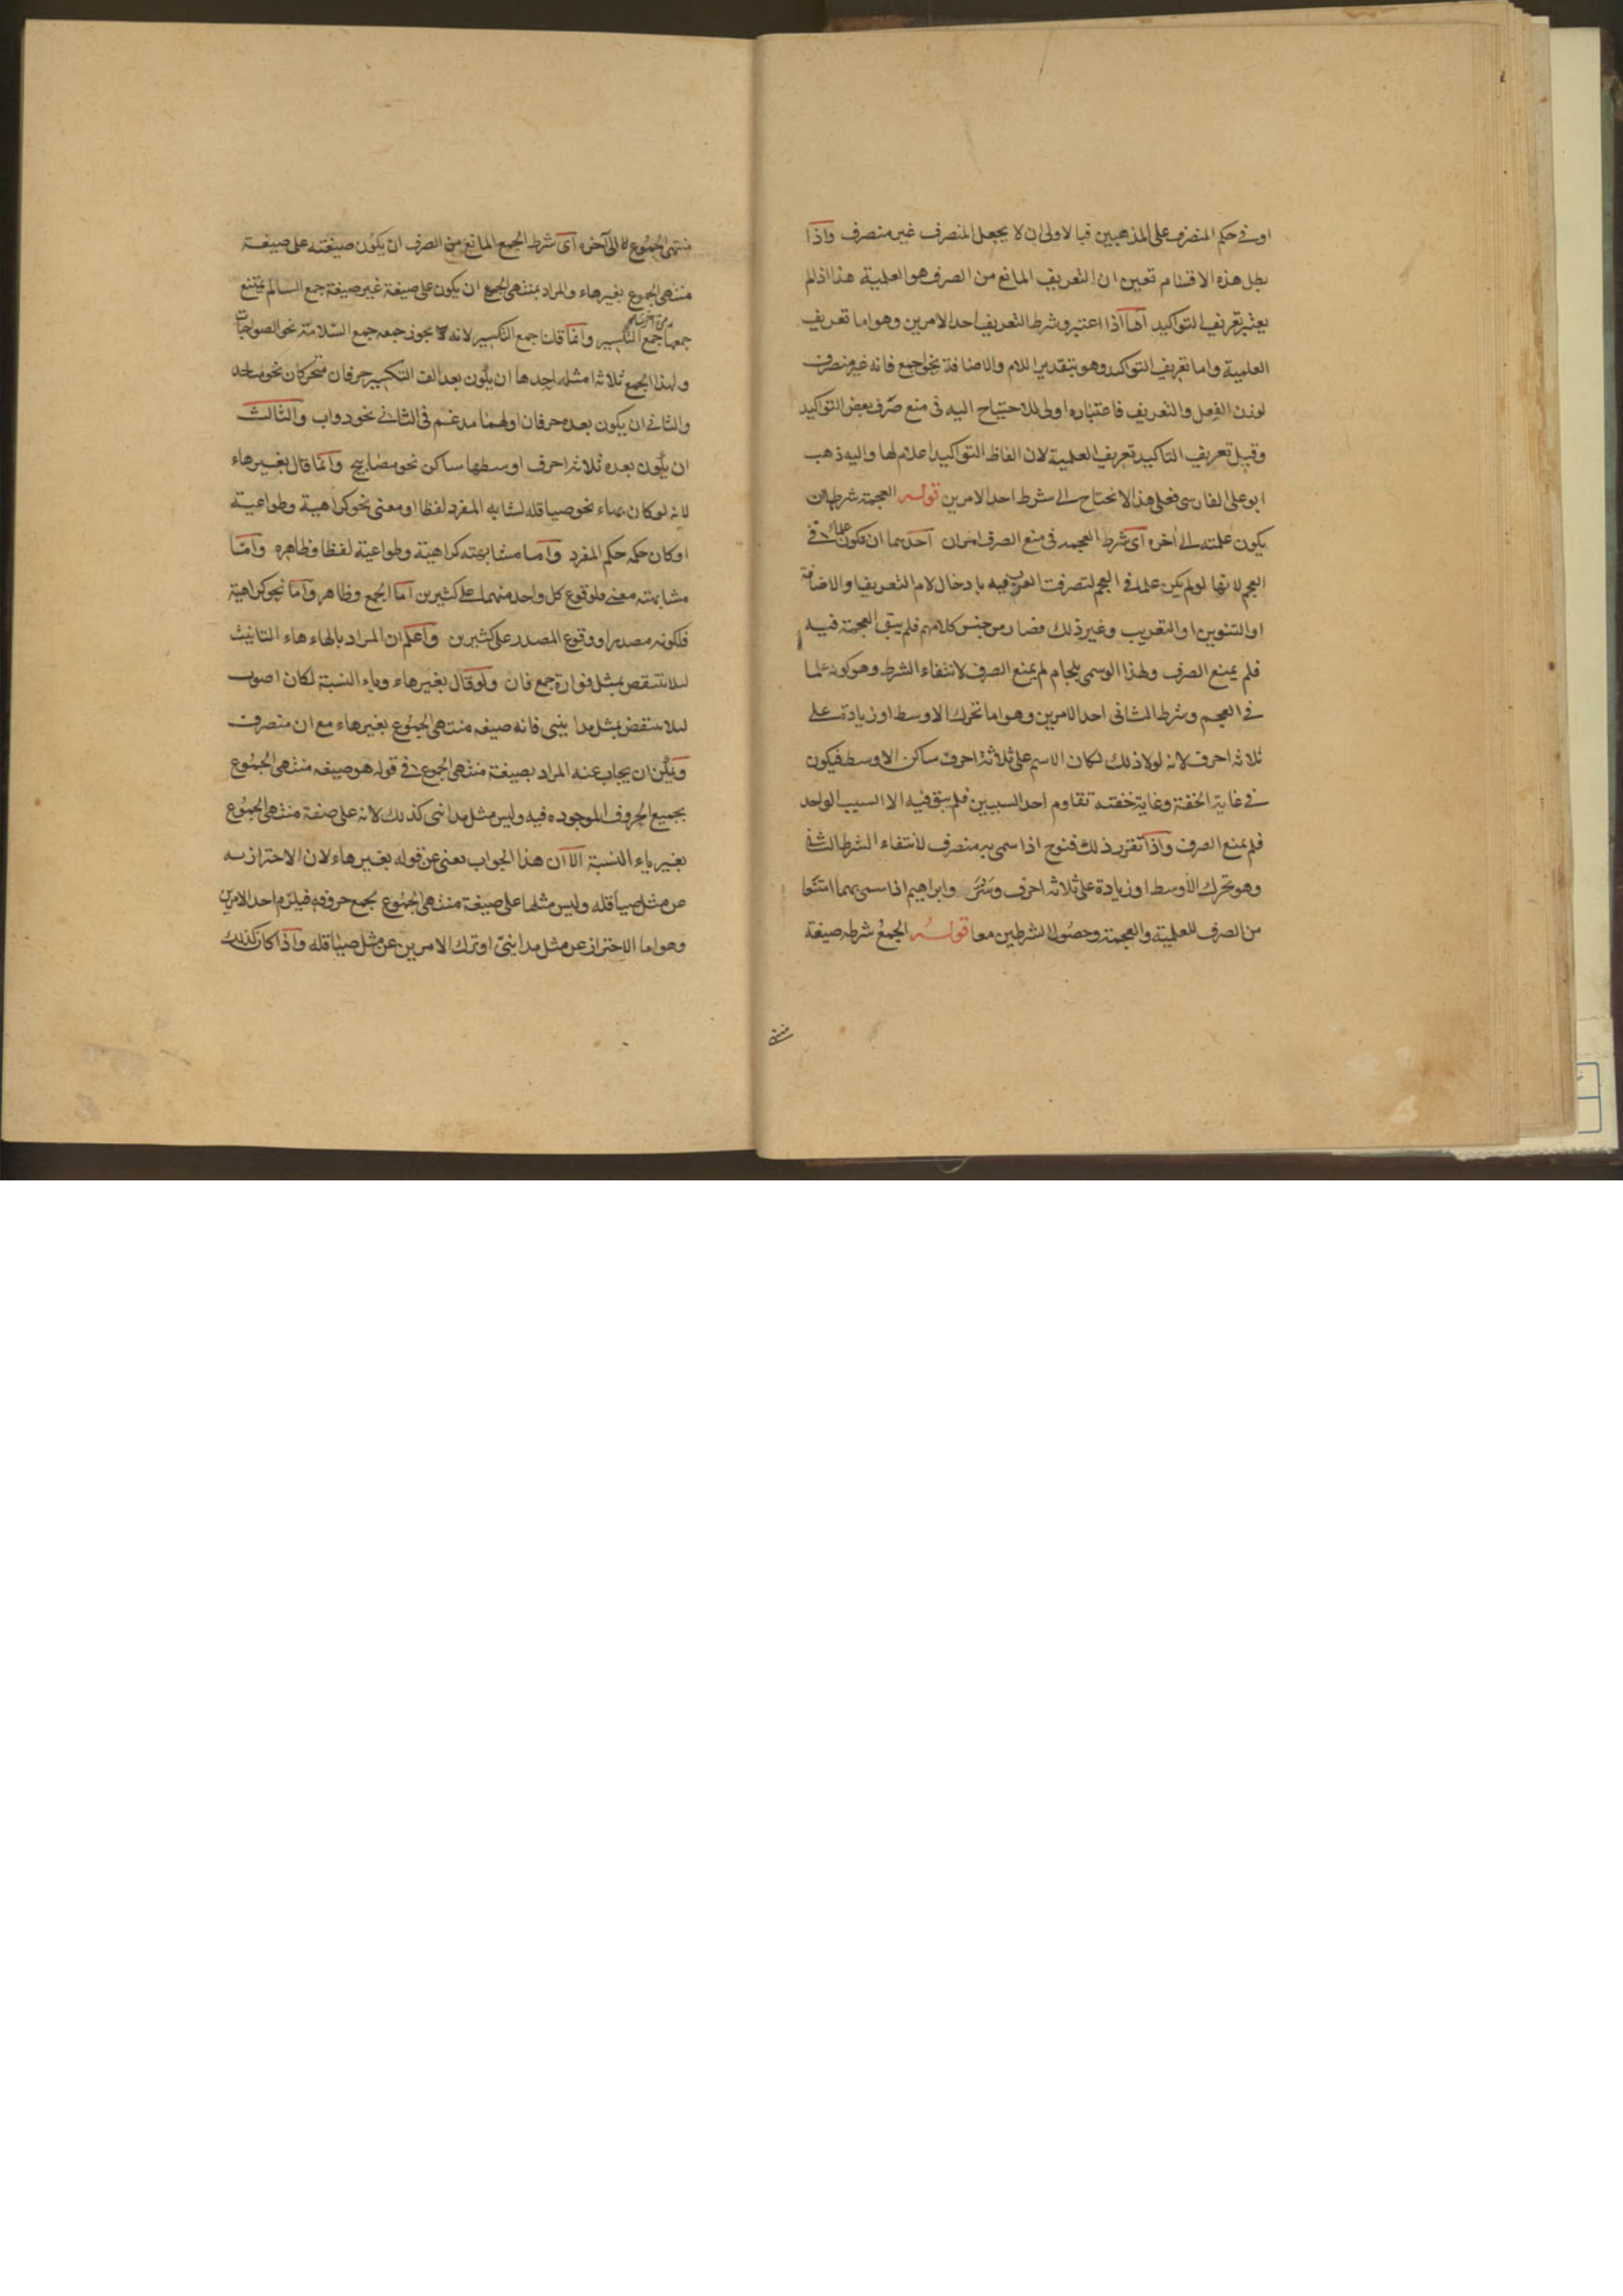 او فى حكم المنصرف على المذهبين فبالاولى ان لا يجعل المنصرف غير منصرف واذا
بطل هذه الاقسام تعين ان التعريف المانع من الصرف هو العلمية هذا اذا لم
يعتبر تعريف التواكيد اما اذا اعتبر وشرط التعريف احد الامرين وهو اما تعريف
العلمية واما تعريف التواكيد وهو بتقدير اللام والاضافة نحو اجمع فانه غير منصرف
لوزن الفعل والتعريف فاعتباره اولى للاحتياج اليه فى منع صرف بعض التواكيد
وقيل تعريف التاكيد تعريف العلمية لان الفاظ التواكيد اعلام لها واليه ذهب
ابو على الفارسى فعلى هذا لا نحتاج الى شرط احد الامرين قوله العجمة شرطها ان
يكون علمية الى اخره اى شرط العجمة فى منع الصرف امران احدهما ان تكون علما فى
العجم لانها لو لم يكن علما فى العجم لتصرفت العرب فيه بادخال لام التعريف والاضافة
او التنوين او التعريب وغير ذلك فصار من جنس كلامهم فلم يبق العجمة فيه
فلم يمنع الصرف ولهذا لو سمى بلجام لم يمنع الصرف لانتفاء الشرط وهو كونه علما
فى العجم وشرط الثانى احد الامرين وهو اما تحرك الاوسط او زيادة على
ثلاثه احرف لانه لولا ذلك لكان الاسم على ثلاثة احرف ساكن الاوسط فيكون
فى غاية الخفة وغاية خفته تقاوم احد السببين فلم يبق فيه الا السبب الواحد
فلم يمنع الصرف واذا تقرر ذلك فنوح اذا سمى به منصرف لانتفاء الشرط الثانى
وهو تحرك الاوسط او زيادة على ثلاثه احرف وشتر وابراهيم اذا سمى بهما امتنعا
من الصرف للعلمية والعجمة وحصول الشرطين معا قوله الجمع شرطه صيغة
منتهى
منتهى الجموع الى آخره اى شرط الجمع المانع من الصرف ان يكون صيغته على صيغة
منتهى الجموع بغير هاء والمراد بمنتهى الجموع ان يكون على صيغة غير صيغة جمع السالم يمتنع
جمعها جمع التكسير مرة اخرى وانما قلنا جمع التكسير لانه يجوز جمعه جمع السلامة نحو الصواحبات
ولهذا الجمع ثلاثة امثلة احدها ان يكون بعد الف التكسير حرفان متحركان نحو مساجد
والثانى ان يكون بعده حرفان اولهما مدغم فى الثانى نحو دواب والثالث
ان يكون بعده ثلاثة احرف اوسطها ساكن نحو مصابيح وانما قال بغير هاء
لانه لو كان بهاء نحو صياقلة لشابه المفرد لفظا او معنى نحو كراهية وطواعية
او كان حكمه حكم المفرد واما مشابهته كراهية وطواعية لفظا فظاهره واما
مشابهته معنى فلوقوع كل واحد منهما على كثيرين اما الجمع وظاهر واما نحو كراهية
فلكونه مصدرا ووقوع المصدر على كثيرين واعلم ان المراد بالهاء هاء التانيث
لئلا ينتقص بمثل فوارة جمع فان ولو قال بغير هاء وياء النسبة لكان اصوب
لئلا ينتقض بمثل مداينى فانه صيغه منتهى الجموع بغير هاء مع ان منصرف
ويمكن ان يجاب عنه المراد بصيغة منتهى الجموع فى قوله هو صيغه منتهى الجموع
بجميع الحروف الموجوده فيه وليس مثل مداينى كذلك لانه على صفة منتهى الجموع
بغير ياء النسبة الا ان هذا الجواب يعنى عن قوله بغير هاء لان الاحتراز به
عن مثل صياقله وليس مثلها على صيغة منتهى الجموع بجمع حروفه فيلزم احد الامرين
وهو اما الاحتراز عن مثل مداينى او ترك الامرين عن مثل صياقله واذا كان كذلك